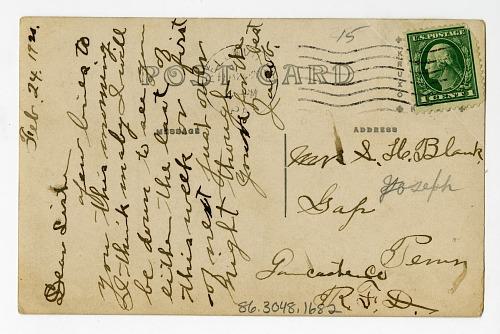 Feb. 24. 19
Dear Sister
a few lines to
you this morning
I think maby I will
be down to see you
either the last of
this week or first
of next just after
night though
Yours in the best
15
POST CARD
MESSAGE
ADDRESS
U.S. POSTAGE
1 CENT 1
Mrs S. H. Blank
Joseph
Gap
Penn
Lancaster Co
R.F.D.
86.3048.1682